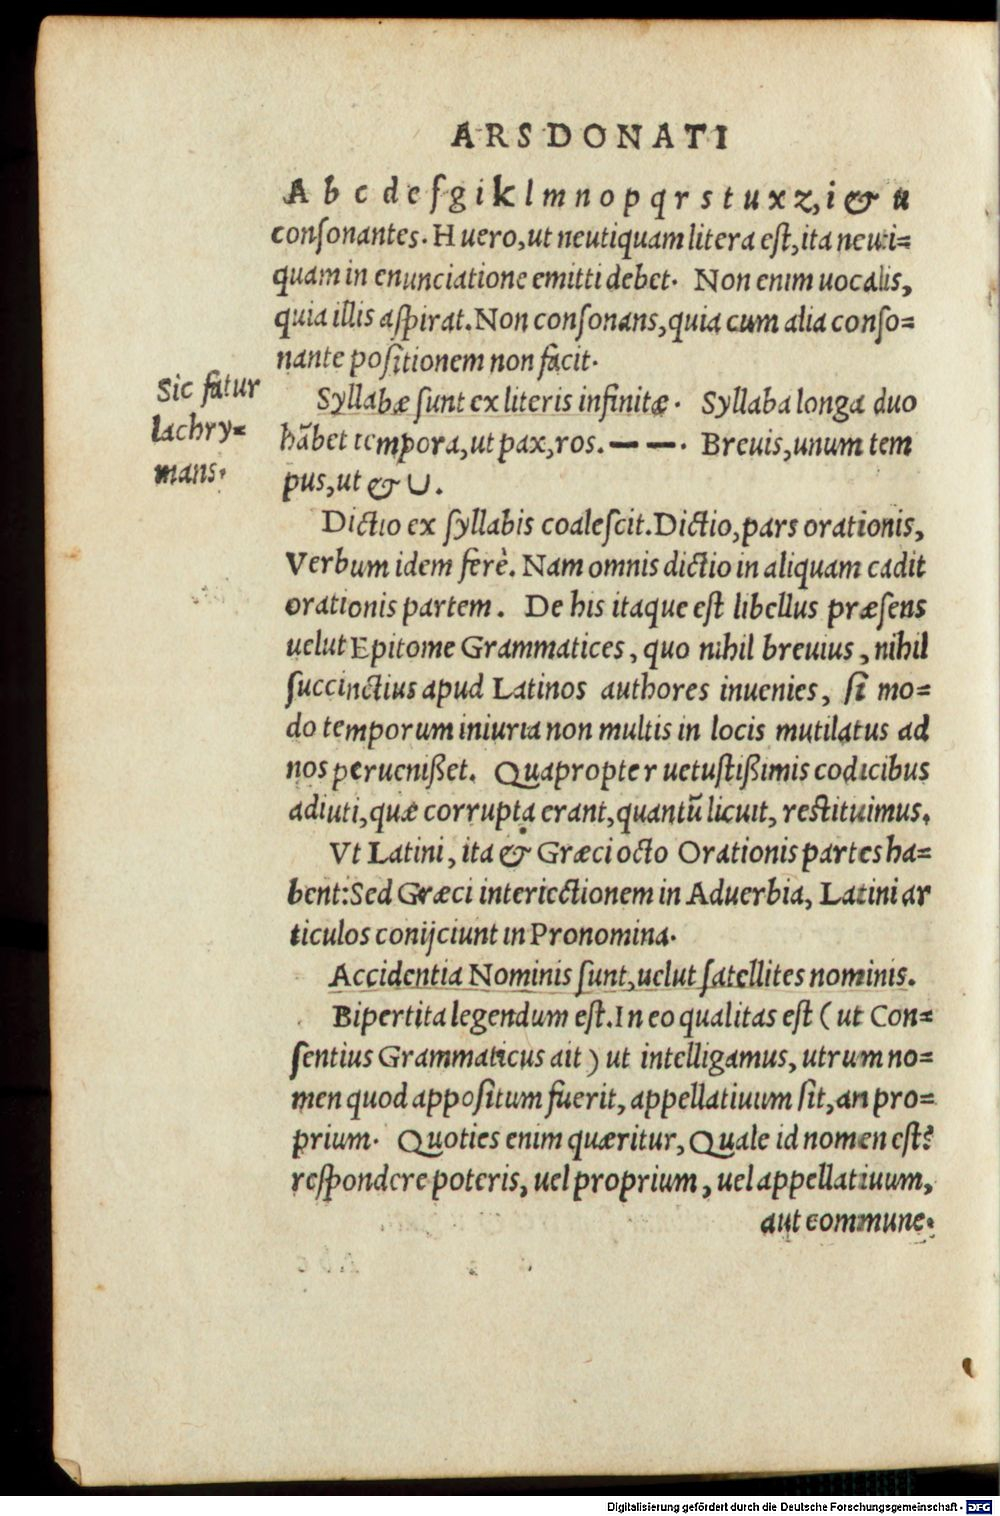 ARS DONATI
A b c d e f g i k l m n o p q r s t u x z, i & u
conſonantes. H uero, ut neutiquam litera eſt, ita neuti=
quam in enunciatione emitti debet. Non enim uocalis,
quia illis aſpirat. Non conſonans, quia cum alia conſo=
nante poſitionem non facit.
Sic fatur
lachry=
mans.
Syllabæ ſunt ex literis infinitæ. Syllaba longa duo
hãbet tempora, ut pax, ros. — —. Breuis, unum tem
pus, ut & ∪.
Dictio ex ſyllabis coaleſcit. Dictio, pars orationis,
Verbum idem ferè. Nam omnis dictio in aliquam cadit
orationis partem. De his itaque eſt libellus præſens
uelut Epitome Grammatices, quo nihil breuius, nihil
ſuccinctius apud Latinos authores inuenies, ſi mo=
do temporum iniuria non multis in locis mutilatus ad
nos perueniſſet. Quapropter uetuſtiſſimis codicibus
adiuti, quæ corrupta erant, quantũ licuit, reſtituimus.
Vt Latini, ita & Græci octo Orationis partes ha=
bent: Sed Græci interiectionem in Aduerbia, Latini ar
ticulos conijciunt in Pronomina.
Accidentia Nominis ſunt, uelut ſatellites nominis.
Bipertita legendum eſt. In eo qualitas eſt ( ut Con=
ſentius Grammaticus ait ) ut intelligamus, utrum no=
men quod appoſitum fuerit, appellatiuum ſit, an pro=
prium. Quoties enim quæritur, Quale id nomen eſt?
reſpondere poteris, uel proprium, uel appellatiuum,
aut commune.
Digitalisierung gefördert durch die Deutsche Forschungsgemeinschaft - DFG